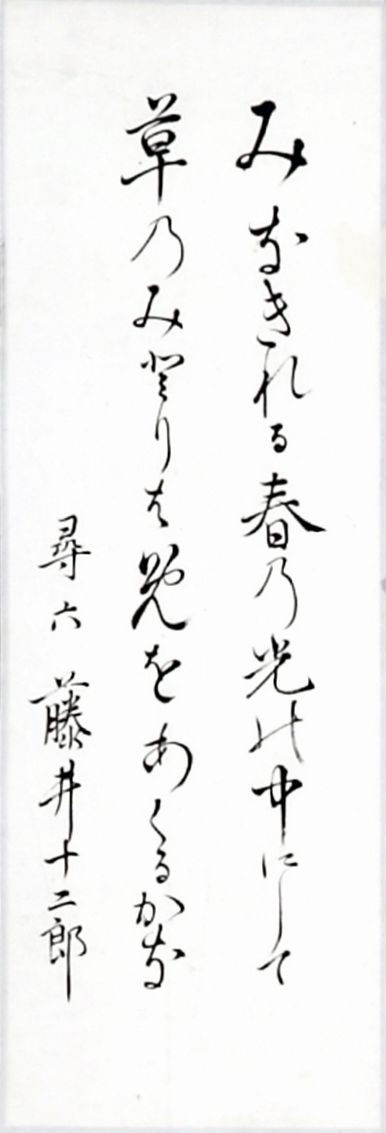 みなきれる春乃光の中にして
草乃みとりは をあくるかな
尋六 藤井十二郎